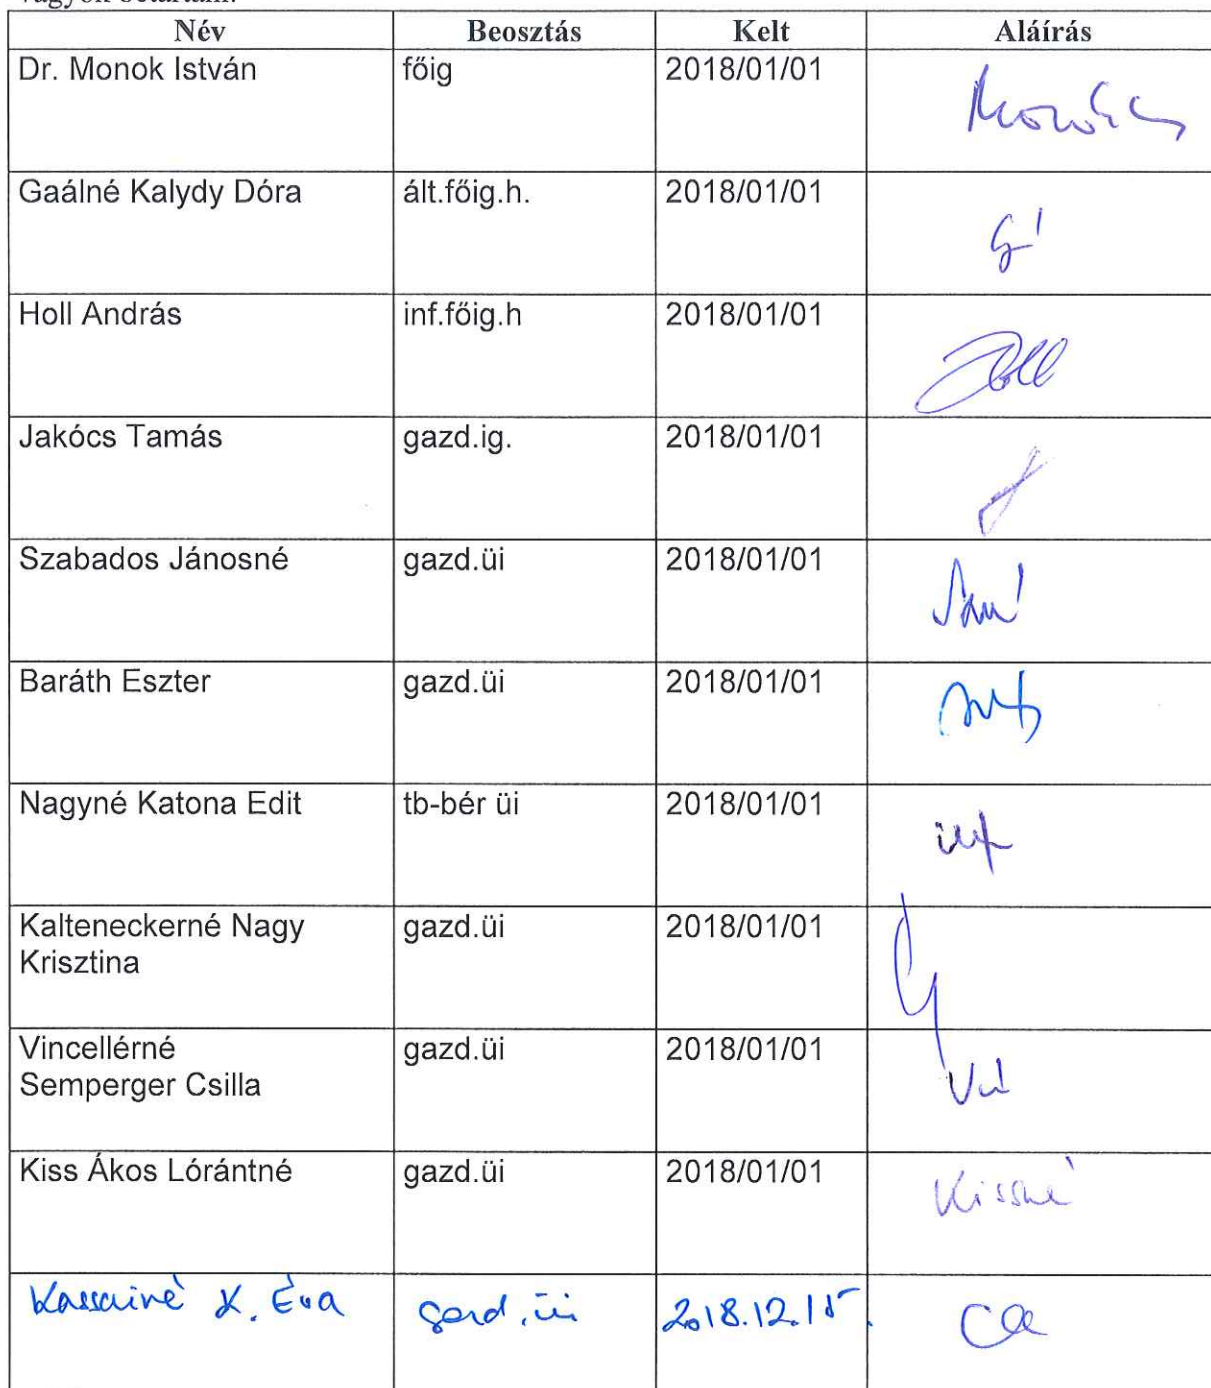 vagyok betartani.
Név Beosztás Kelt Aláírás
Dr. Monok István főig 2018/01/01
Gaálné Kalydy Dóra ált.főig.h. 2018/01/01
Holl András inf.főig.h 2018/01/01
Holl
Jakócs Tamás gazd.ig. 2018/01/01
Szabados Jánosné gazd.üi 2018/01/01
Baráth Eszter gazd.üi 2018/01/01
Nagyné Katona Edit tb-bér üi 2018/01/01
Kalteneckerné Nagy gazd.üi 2018/01/01
Krisztina
Vincellérné gazd.üi 2018/01/01
Semperger Csilla
Kiss Ákos Lórántné gazd.üi 2018/01/01
Kissné
Kassainé K. Éva gazd.üi 2018.12.15.